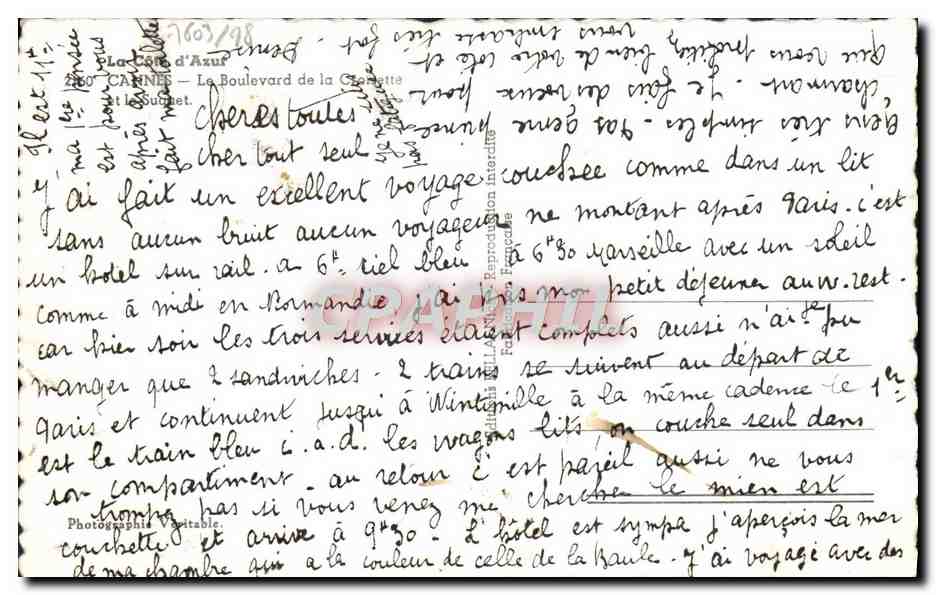 7603/98
La Côte d'Azur
CANNES - Le Boulevard de la Croisette
et le Suquet.
Il est 11H
ma 1ère pensée
est pour vous
après avoir
fait ma toilette
je ne suis
pas fatiguée
Cheres toutes
cher tout seul
J'ai fait un excellent voyage couchée comme dans un lit
sans aucun bruit aucun voyageur ne montant après Paris. c'est
un hotel sur rail. a 6H ciel bleu à 6H30 Marseille avec un soleil
comme à midi en Normandie j'ai pas mon petit déjeuner au w. rest.
car hier soir les trois services étaient complets aussi n'ai-je pu
manger que 2 sandwiches. 2 trains se suivent au départ de
Paris et continuent jusqu'à Vintimille à la même cadence le 1er
est le train bleu c.a.d. les wagons lits, on couche seul dans
son compartiment. au retour c'est pareil aussi ne vous
trompez pas si vous venez me chercher le mien est
couchette et arrive à 9H30. L'hôtel est sympa j'aperçois la mer
de ma chambre qui a la couleur de celle de la Baule. J'ai voyagé avec des
gens très simples. Pas genre prince
charmant. Je fais des vœux pour
que vous profitiez bien de votre coté et
vous embrasse très fort. Denise
Photographie Véritable.
Reproduction interdite
Fabrication Française
CPAPHIL